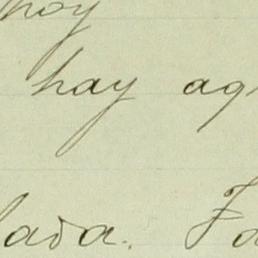 hoy
hay ag
lada. Fa